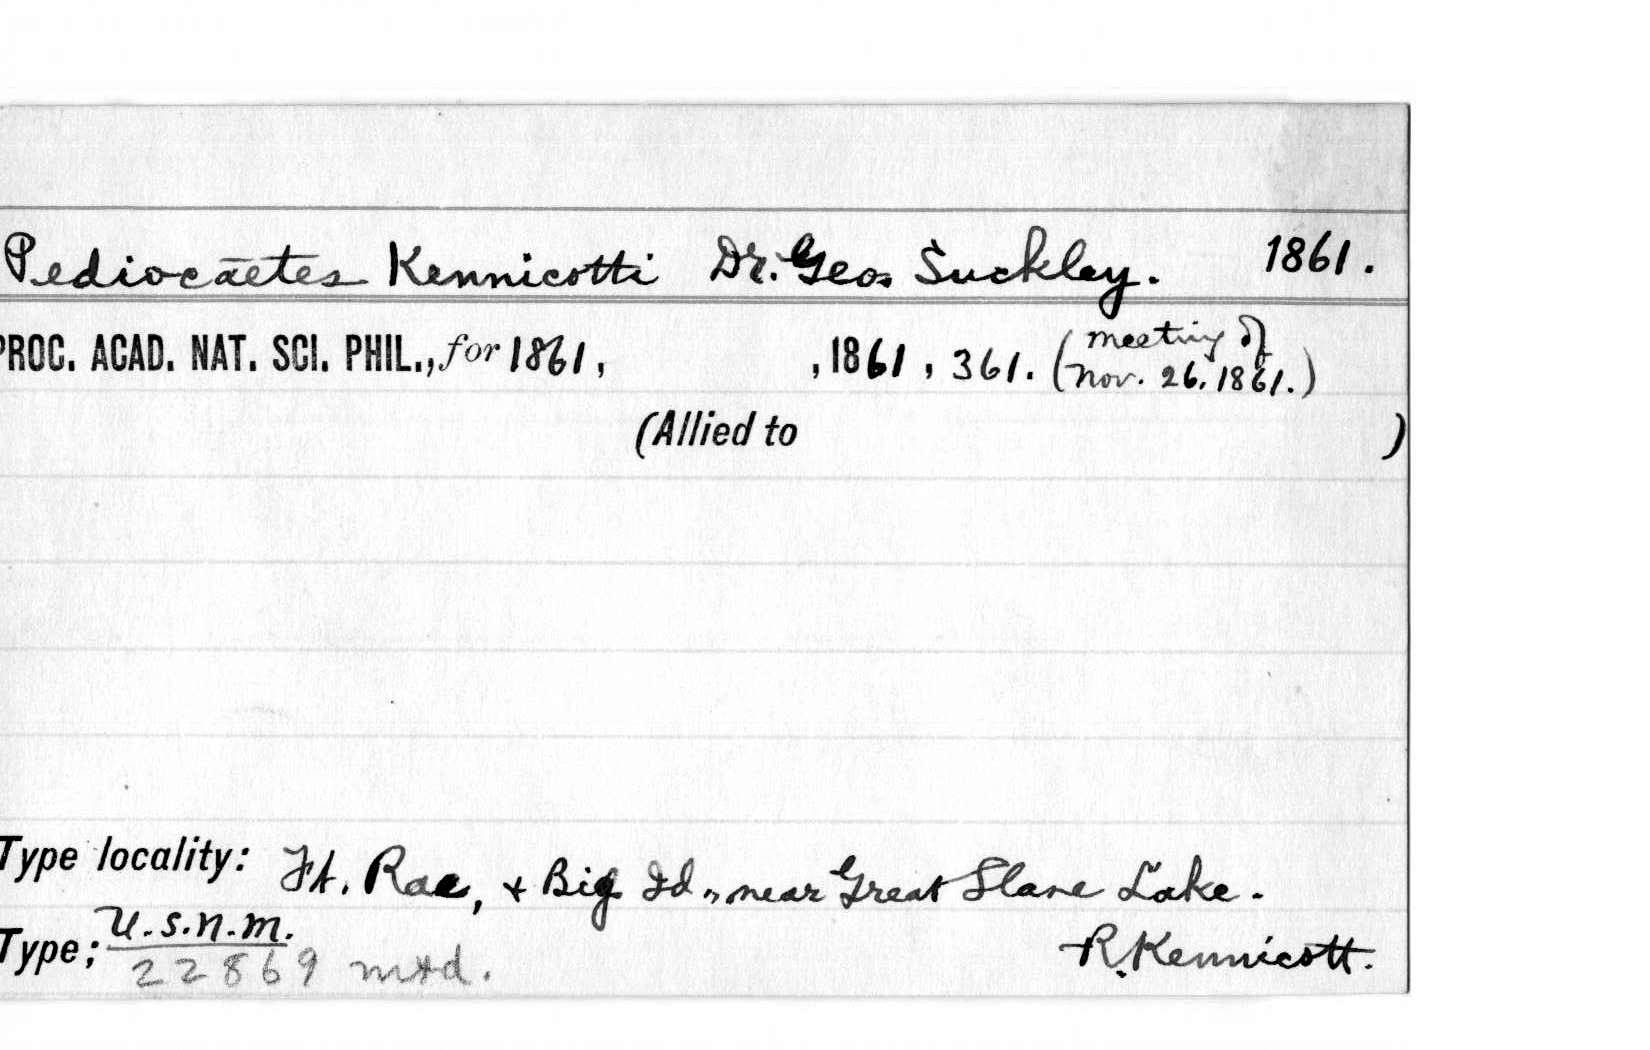 Pediocaetes Kennicotti Dr. Geo. Suckley. 1861.
PROC. ACAD. NAT. SCI. PHIL., for 1861, , 1861, 361. (meeting of
Nov. 26, 1861.)
(Allied to )
Type locality: Ft. Rae, + Big Id., near Great Slave Lake.
Type; U.S.N.M. R. Kennicott.
22869 mtd.